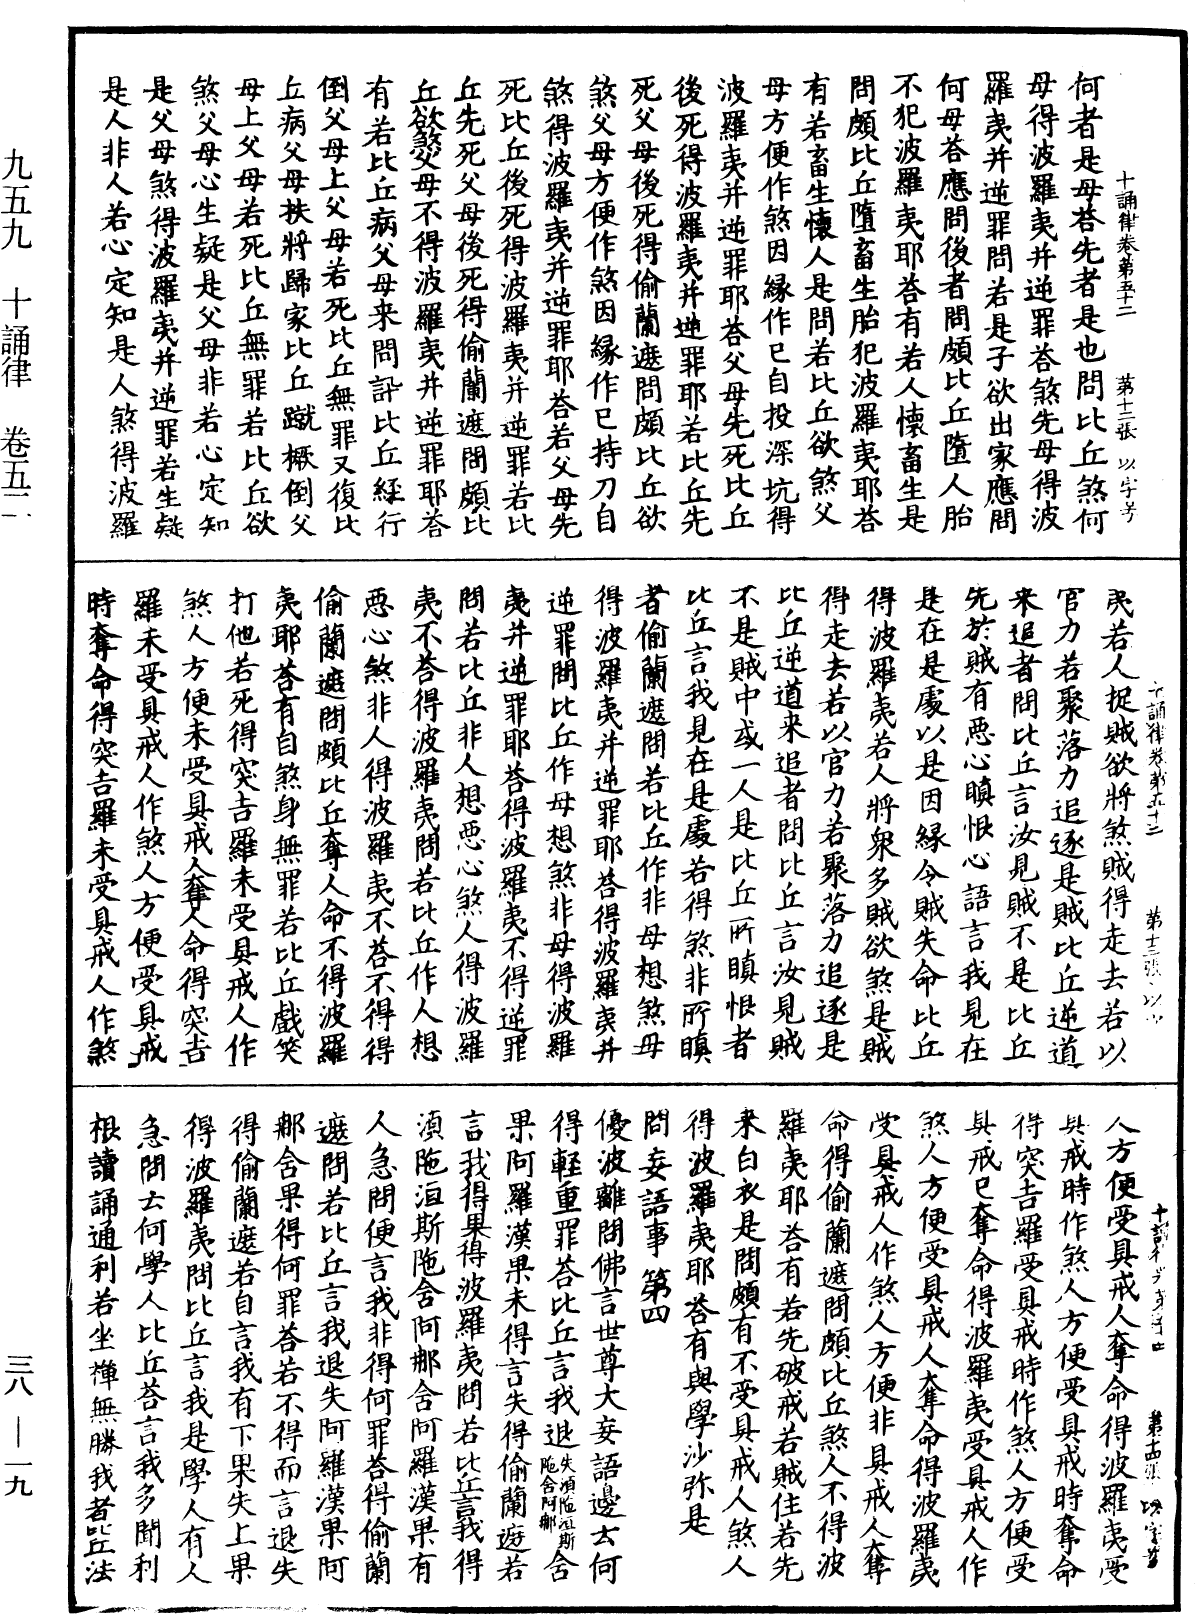 十誦律卷第五十二 第十二張 以字号
何者是母荅先者是也問比丘煞何
母得波羅夷并逆罪荅煞先母得波
羅夷并逆罪問若是子欲出家應問
何母荅應問後者問頗比丘墮人胎
不犯波羅夷耶荅有若人懷畜生是
問頗比丘墮畜生胎犯波羅夷耶荅
有若畜生懷人是問若比丘欲煞父
母方便作煞因緣作已自投深坑得
波羅夷并逆罪耶荅父母先死比丘
後死得波羅夷并逆罪耶若比丘先
死父母後死得偷蘭遮問頗比丘欲
煞父母方便作煞因緣作已持刀自
煞得波羅夷并逆罪耶荅若父母先
死比丘後死得波羅夷并逆罪若比
丘先死父母後死得偷蘭遮問頗比
丘欲煞父母不得波羅夷并逆罪耶荅
有若比丘病父母来問訊比丘經行
倒父母上父母若死比丘無罪又復比
丘病父母扶將歸家比丘蹴橛倒父
母上父母若死比丘無罪若比丘欲
煞父母心生疑是父母非若心定知
是父母煞得波羅夷并逆罪若生疑
是人非人若心定知是人煞得波羅
十誦律卷第五十二 第十三張 以
夷若人捉賊欲將煞賊得走去若以
官力若聚落力追逐是賊比丘逆道
来追者問比丘言汝見賊不是比丘
先於賊有惡心瞋恨心語言我見在
是在是處以是因緣令賊失命比丘
得波羅夷若人將衆多賊欲煞是賊
得走去若以官力若聚落力追逐是
比丘逆道来追者問比丘言汝見賊
不是賊中或一人是比丘所瞋恨者
比丘言我見在是處若得煞非所瞋
者偷蘭遮問若比丘作非母想煞母
得波羅夷并逆罪耶荅得波羅夷并
逆罪問比丘作母想煞非母得波羅
夷并逆罪耶荅得波羅夷不得逆罪
問若比丘非人想惡心煞人得波羅
夷不荅得波羅夷問若比丘作人想
惡心煞非人得波羅夷不荅不得得
偷蘭遮問頗比丘奪人命不得波羅
夷耶荅有自煞身無罪若比丘戲笑
打他若死得突吉羅未受具戒人作
煞人方便未受具戒人奪人命得突吉
羅未受具戒人作煞人方便受具戒
時奪命得突吉羅未受具戒人作煞
人方便受具戒人奪命得波羅夷受
具戒時作煞人方便受具戒時奪命
得突吉羅受具戒時作煞人方便受
具戒已奪命得波羅夷受具戒人作
煞人方便受具戒人奪命得波羅夷
受具戒人作煞人方便非具戒人奪
命得偷蘭遮問頗比丘煞人不得波
羅夷耶荅有若先破戒若賊住若先
来白衣是問頗有不受具戒人煞人
得波羅夷耶荅有與學沙弥是
問妄語事第四
優波離問佛言世尊大妄語邊云何
得輕重罪荅比丘言我退失湏陁洹斯陁舍阿那舍
果阿羅漢果未得言失得偷蘭遮若
言我得果得波羅夷問若比丘言我得
湏陁洹斯陁舍阿那舍阿羅漢果有
人急問便言我非得何罪荅得偷蘭
遮問若比丘言我退失阿羅漢果阿
那舍果得何罪荅若不得而言退失
得偷蘭遮若自言我有下果失上果
得波羅夷問比丘言我是學人有人
急問云何學人比丘荅言我多聞利
根讀誦通利若坐禪無勝我者比丘法
九五九 十誦律 卷五二
三八—一九